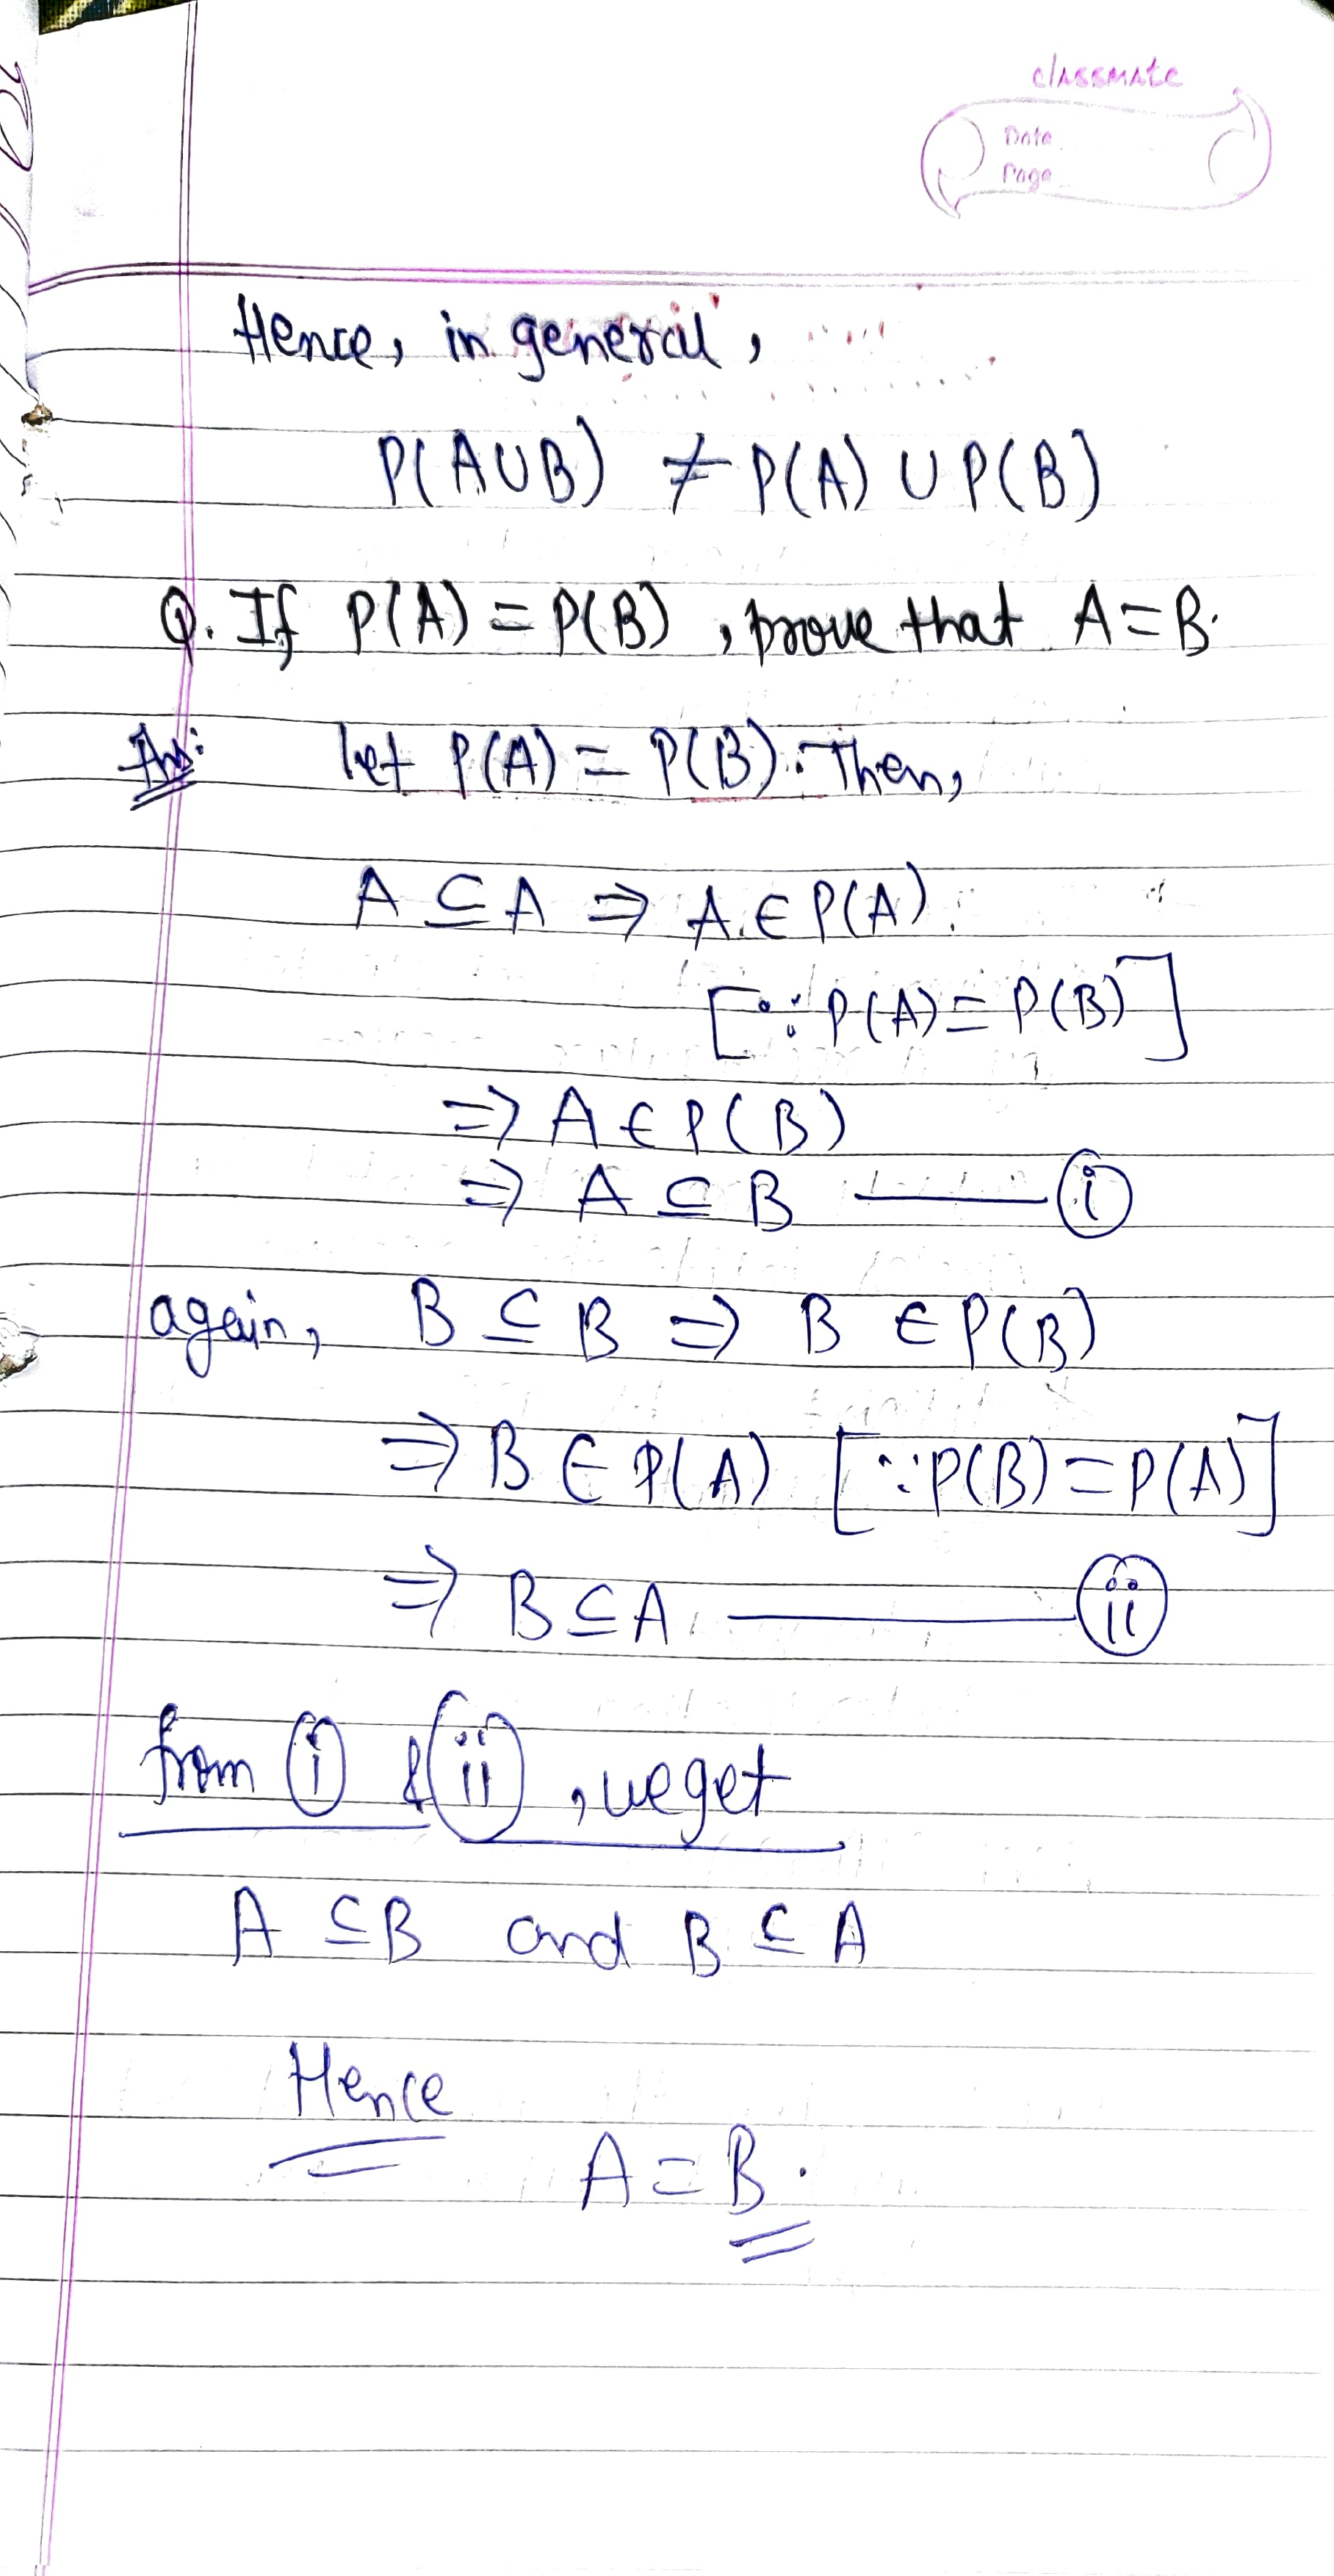 classmate
Date
Page
Hence, in general,
P(A∪B) ≠ P(A) ∪ P(B)
Q. If P(A) = P(B), prove that A=B.
Ans: let P(A) = P(B). Then,
A ⊆ A ⇒ A ∈ P(A)
[∵ P(A) = P(B)]
⇒ A ∈ P(B)
⇒ A ⊆ B —— (i)
again, B ⊆ B ⇒ B ∈ P(B)
⇒ B ∈ P(A) [∵ P(B) = P(A)]
⇒ B ⊆ A —— (ii)
from (i) & (ii), we get
A ⊆ B and B ⊆ A
Hence
A = B.